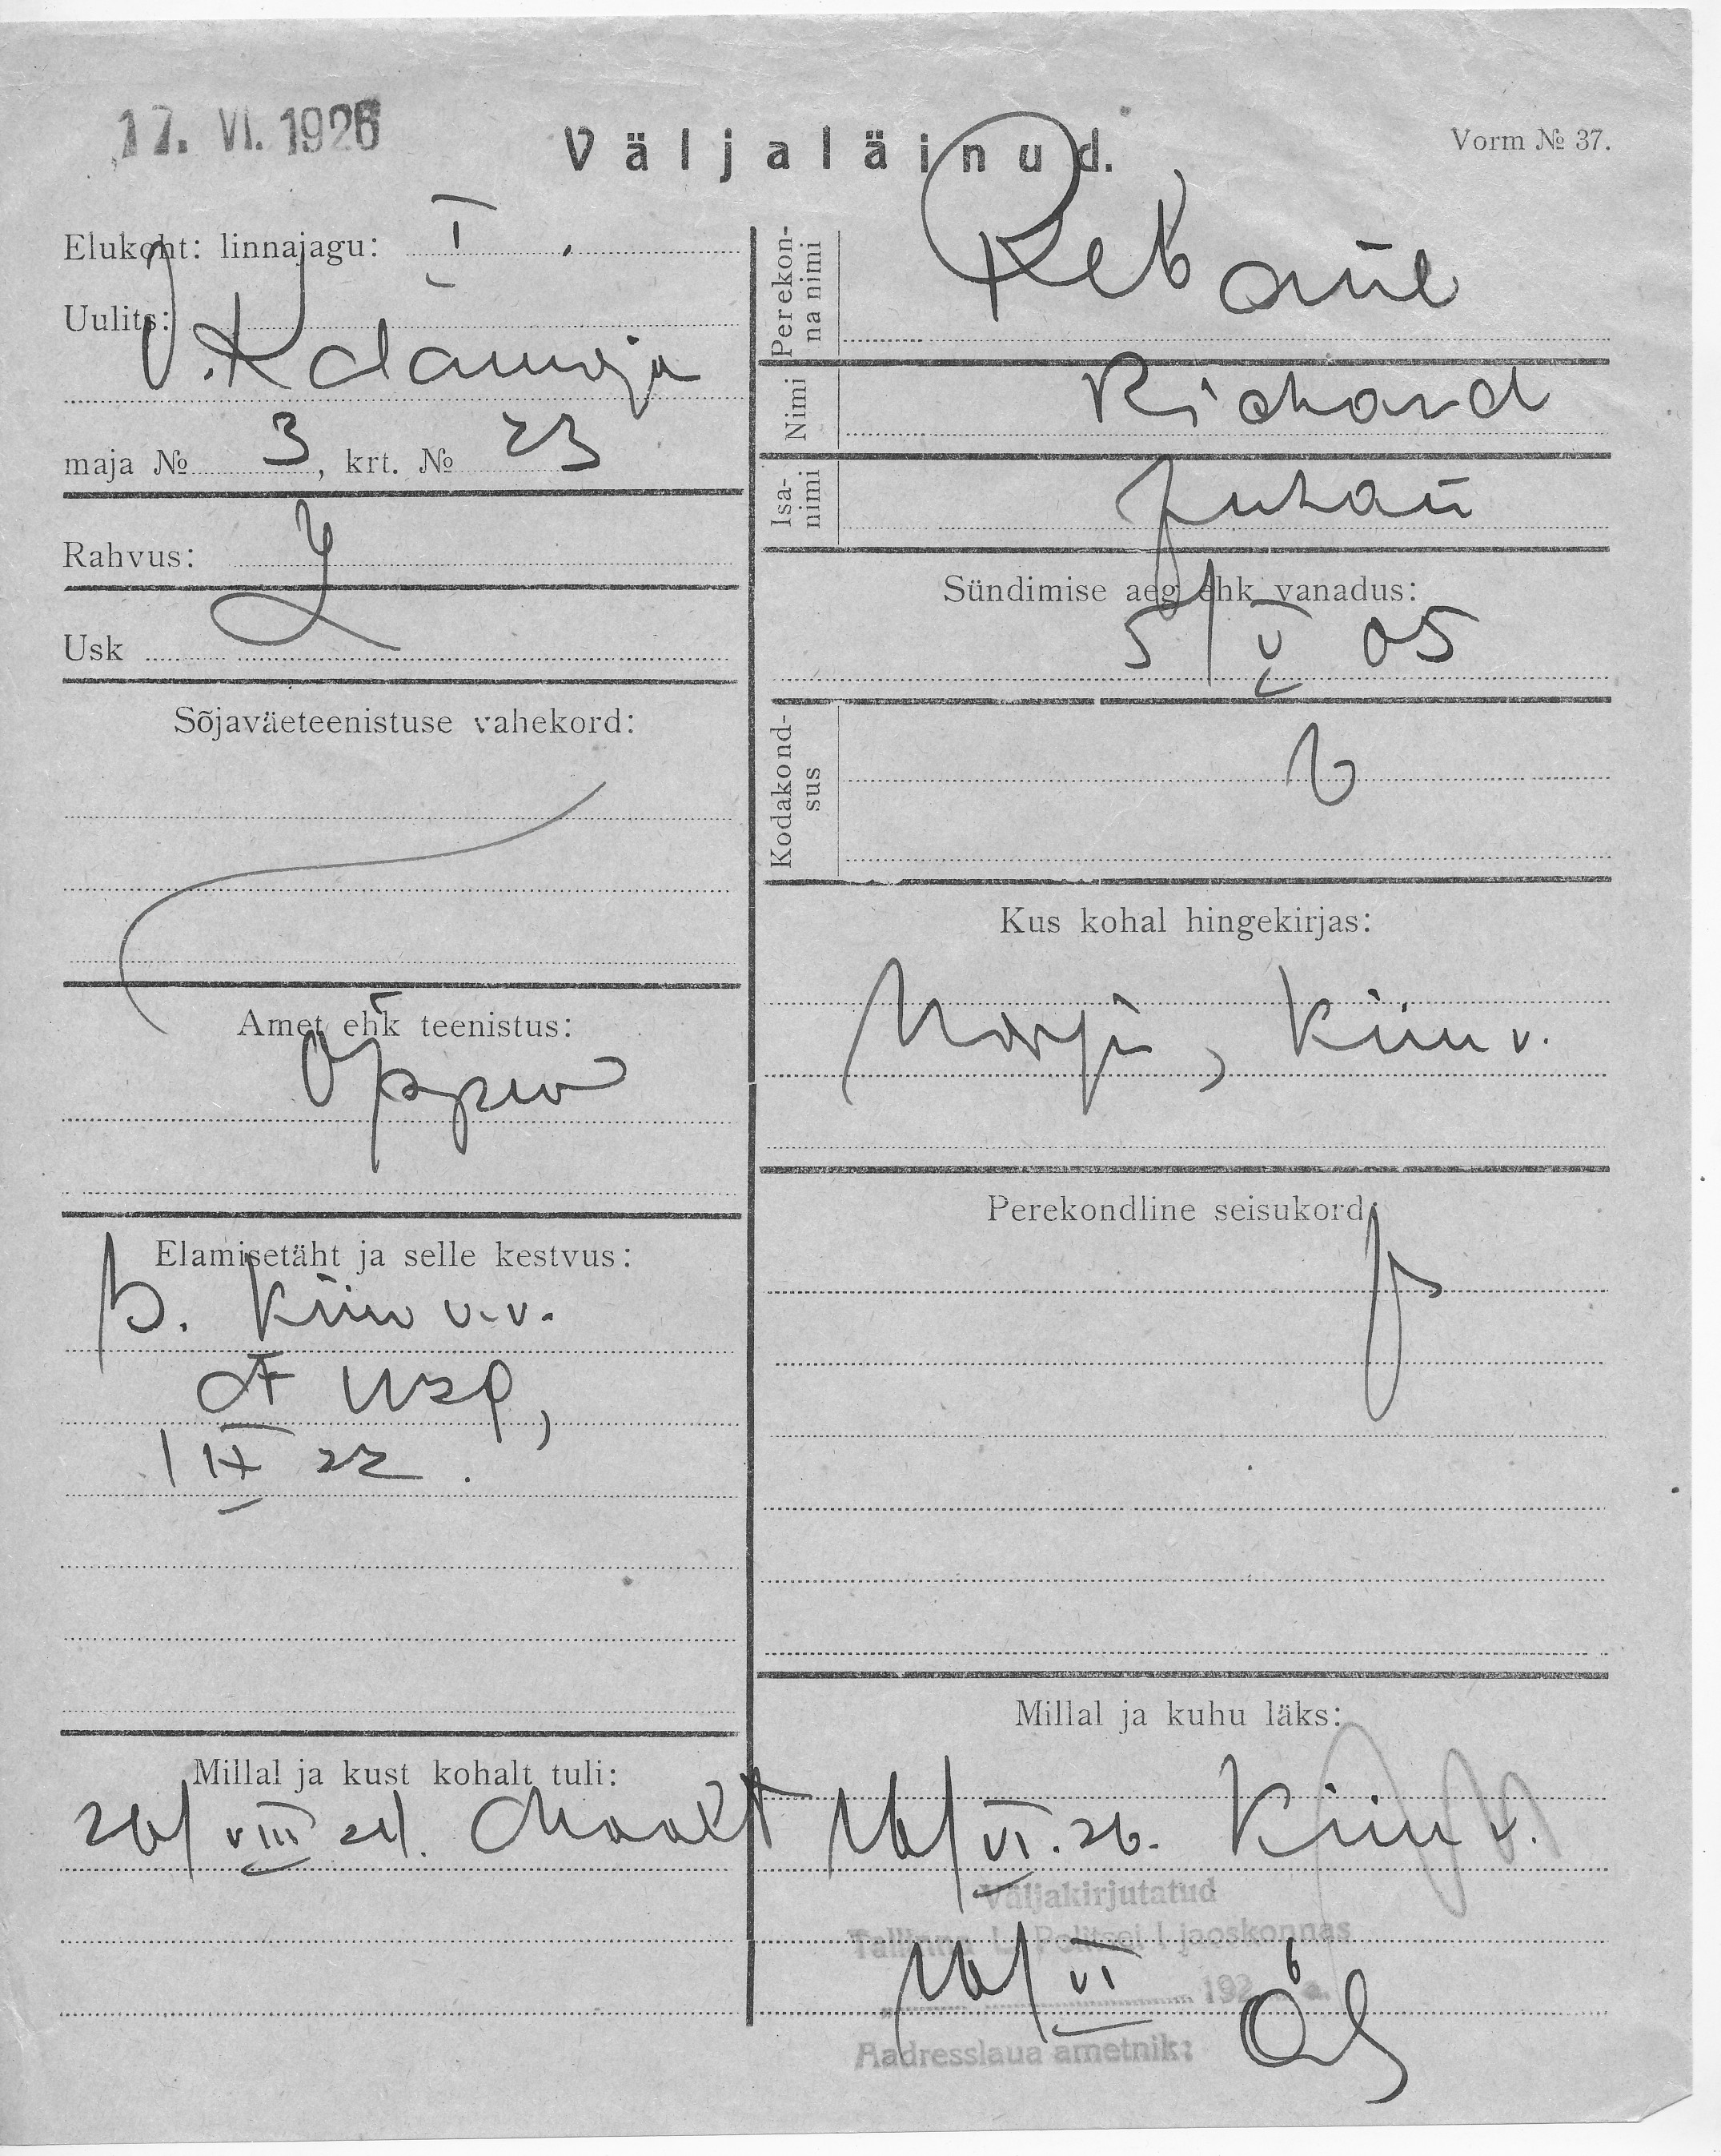 17. VI. 1926
Väljaläinud.
Vorm № 37.
Elukoht: linnajagu: I
Uulits:
V. Kalamaja
maja № 3, krt. № 23
Rahvus:
Usk
Sõjaväeteenistuse vahekord:
Amet ehk teenistus:
Elamisetäht ja selle kestvus:
Kiiu v.v.
1 IX 22.
Millal ja kust kohalt tuli:
26/VIII 24. Maalt
Perekonna nimi
Rebane
Nimi
Richard
Isanimi
Juhan
Sündimise aeg ehk vanadus:
5/V 05
Kodakondsus
Kus kohal hingekirjas:
Harju, Kiiu v.
Perekondline seisukord:
Millal ja kuhu läks:
16/VI. 26. Kiiu v.
Väljakirjutatud
Tallinna L. Politsei I jaoskonnas
16/VI 1926 a.
Aadresslaua ametnik: